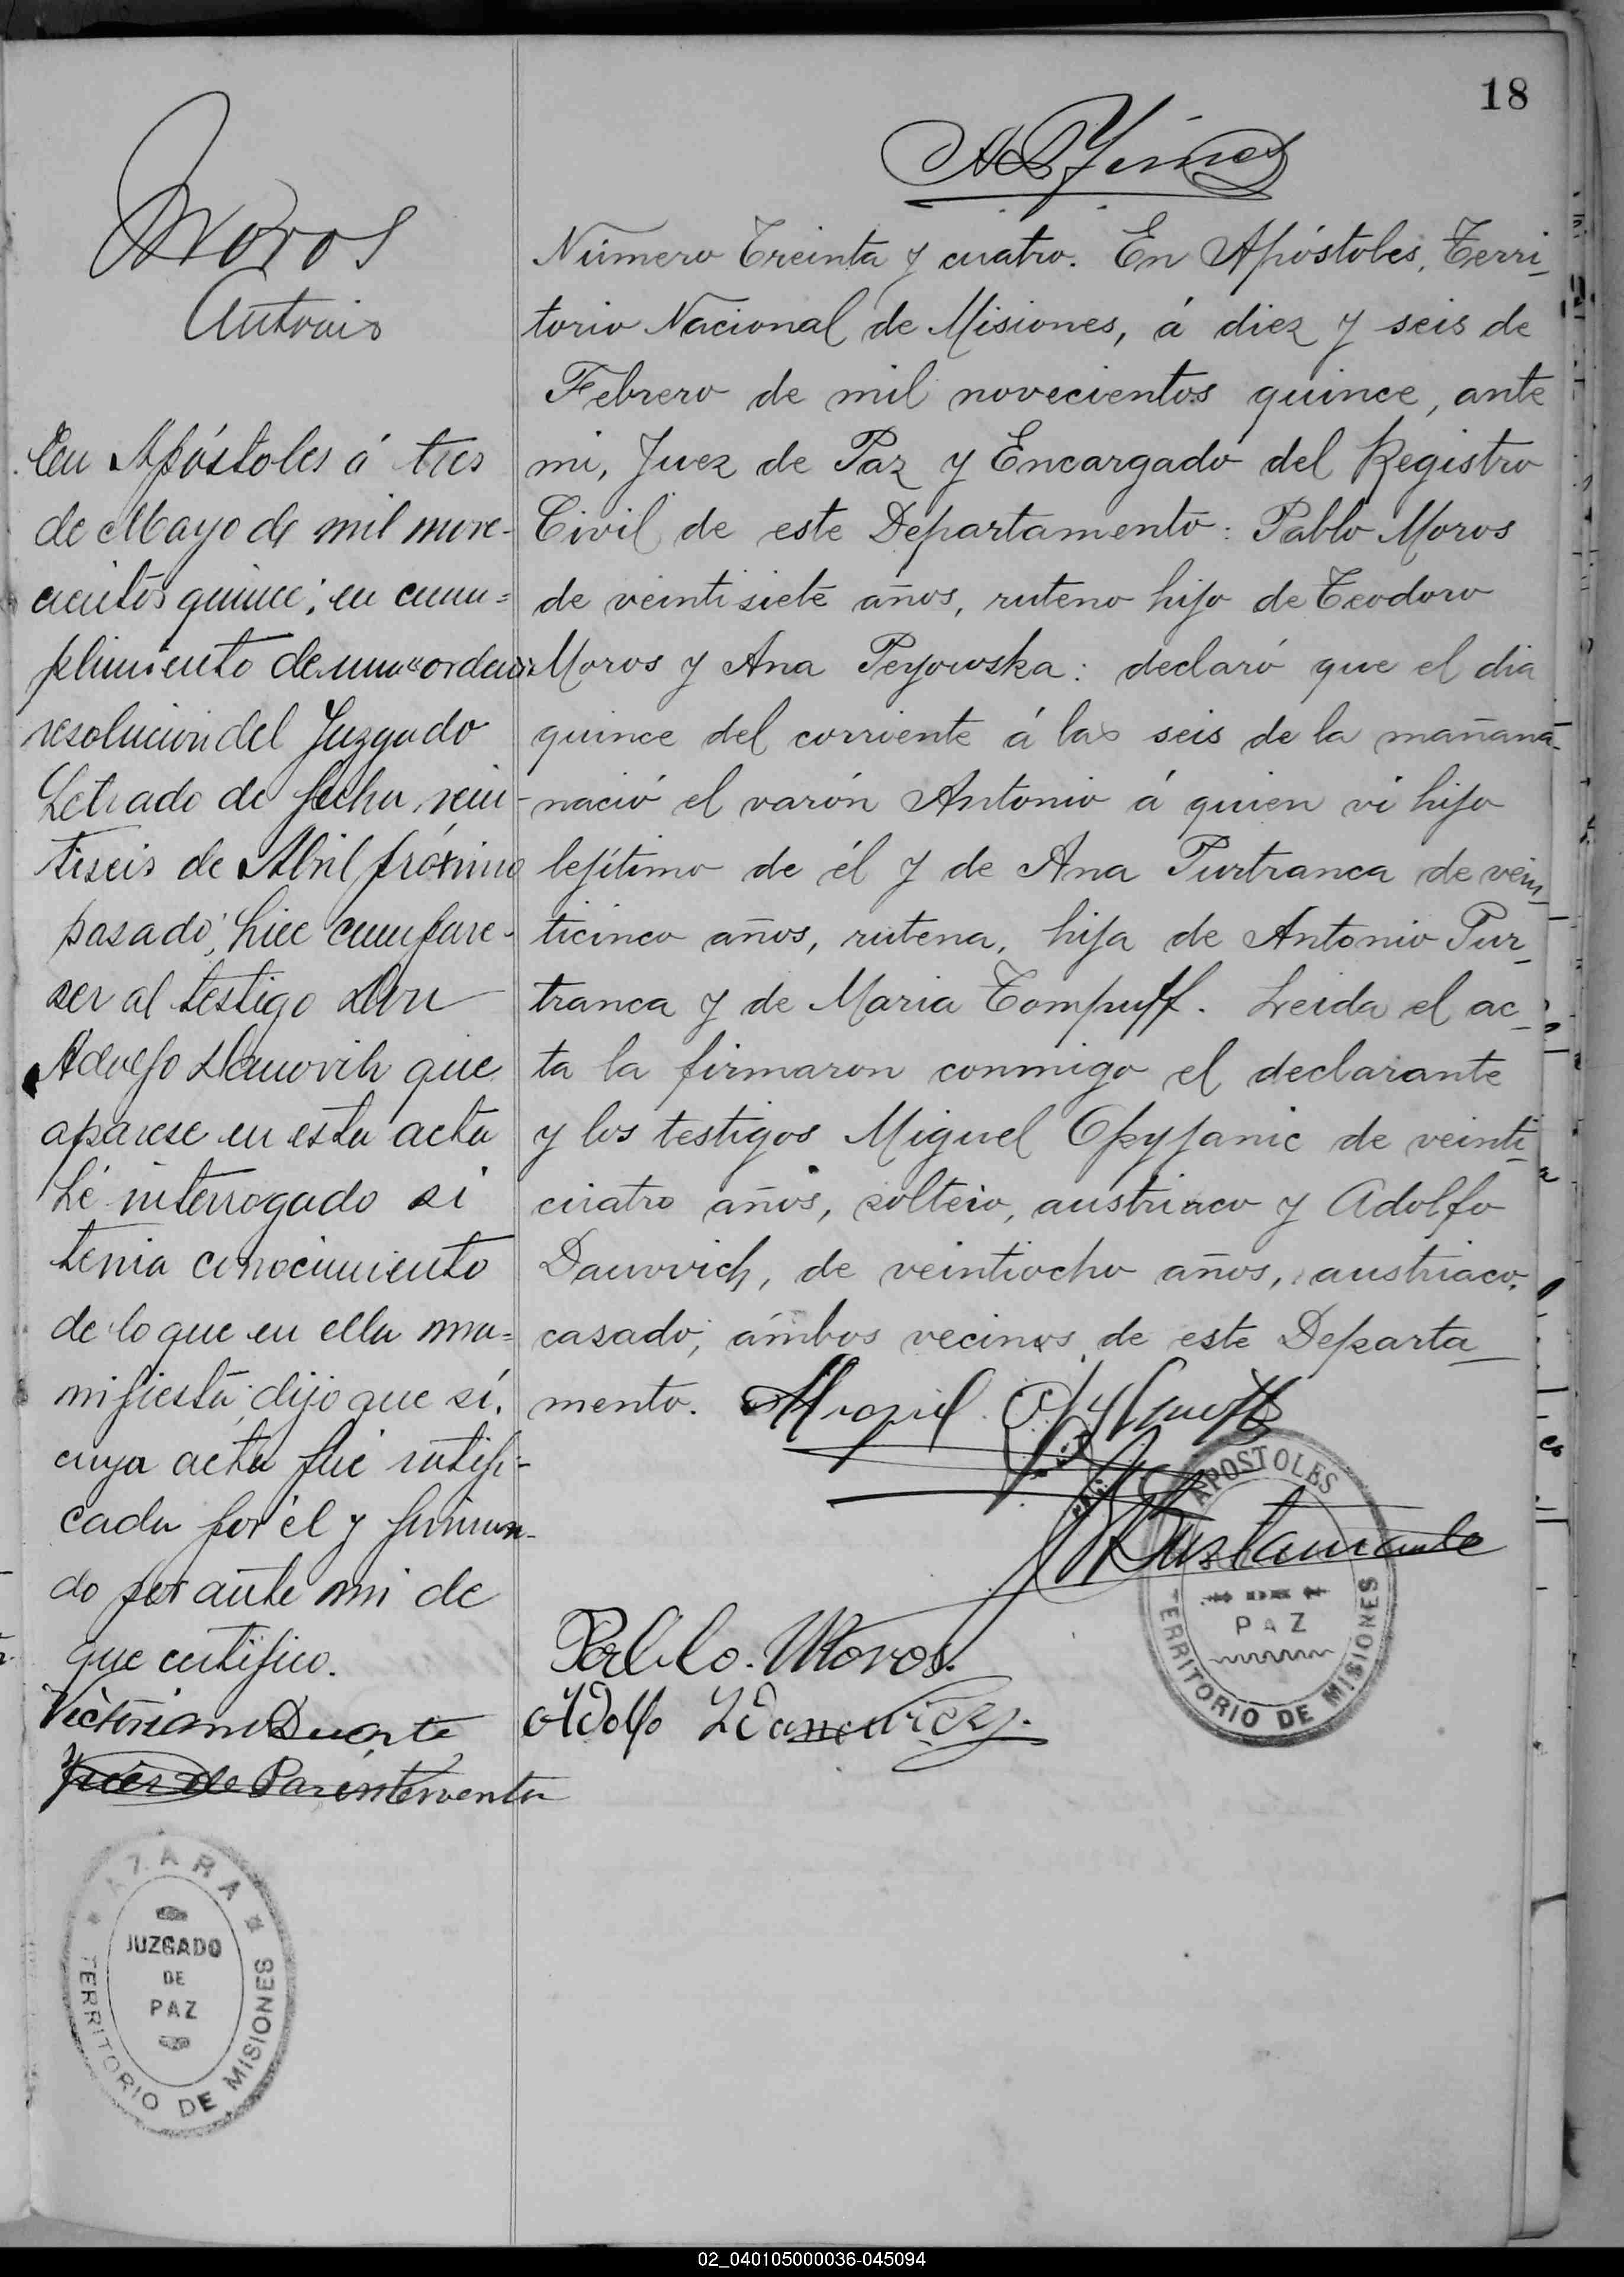 18
Moros
Antonio
En Apóstoles á tres
de Mayo de mil nove-
cientos quince; en cum=
plimiento de una orden
resolucion del Juzgado
Letrado de fecha vein-
tiseis de Abril próximo
pasado, hice compare-
ser al testigo Don
Adolfo Danovich que
aparese en esta acta
hé interrogado si
tenia conocimiento
de lo que en ella ma=
nifiesta; dijo que sí,
cuya acta fue ratifi-
cada por él y firman-
do por ante mi de
que certifico.
Victoriano Duarte
Juez de Paz
AZARA
JUZGADO
DE
PAZ
TERRITORIO DE MISIONES
Número Treinta y cuatro. En Apóstoles, Terri_
torio Nacional de Misiones, á diez y seis de
Febrero de mil novecientos quince, ante
mi, Juez de Paz y Encargado del Registro
Civil de este Departamento: Pablo Moros
de veintisiete años, ruteno hijo de Teodoro
Moros y Ana Peyowska: declaró que el dia
quince del corriente á las seis de la mañana
nació el varón Antonio á quien vi hijo
lejítimo de él y de Ana Purtranca de vein_
ticinco años, rutena, hija de Antonio Pur_
tranca y de Maria Tompuff. Leida el ac_
ta la firmaron conmigo el declarante
y los testigos Miguel Opyjanic de veinti_
cuatro años, soltero, austriaco y Adolfo
Danovich, de veintiocho años, austriaco,
casado; ámbos vecinos de este Departa_
mento.
Bustamante
APOSTOLES
PAZ
TERRITORIO DE MISIONES
Pablo. Moros.
Adolfo
02_040105000036-045094